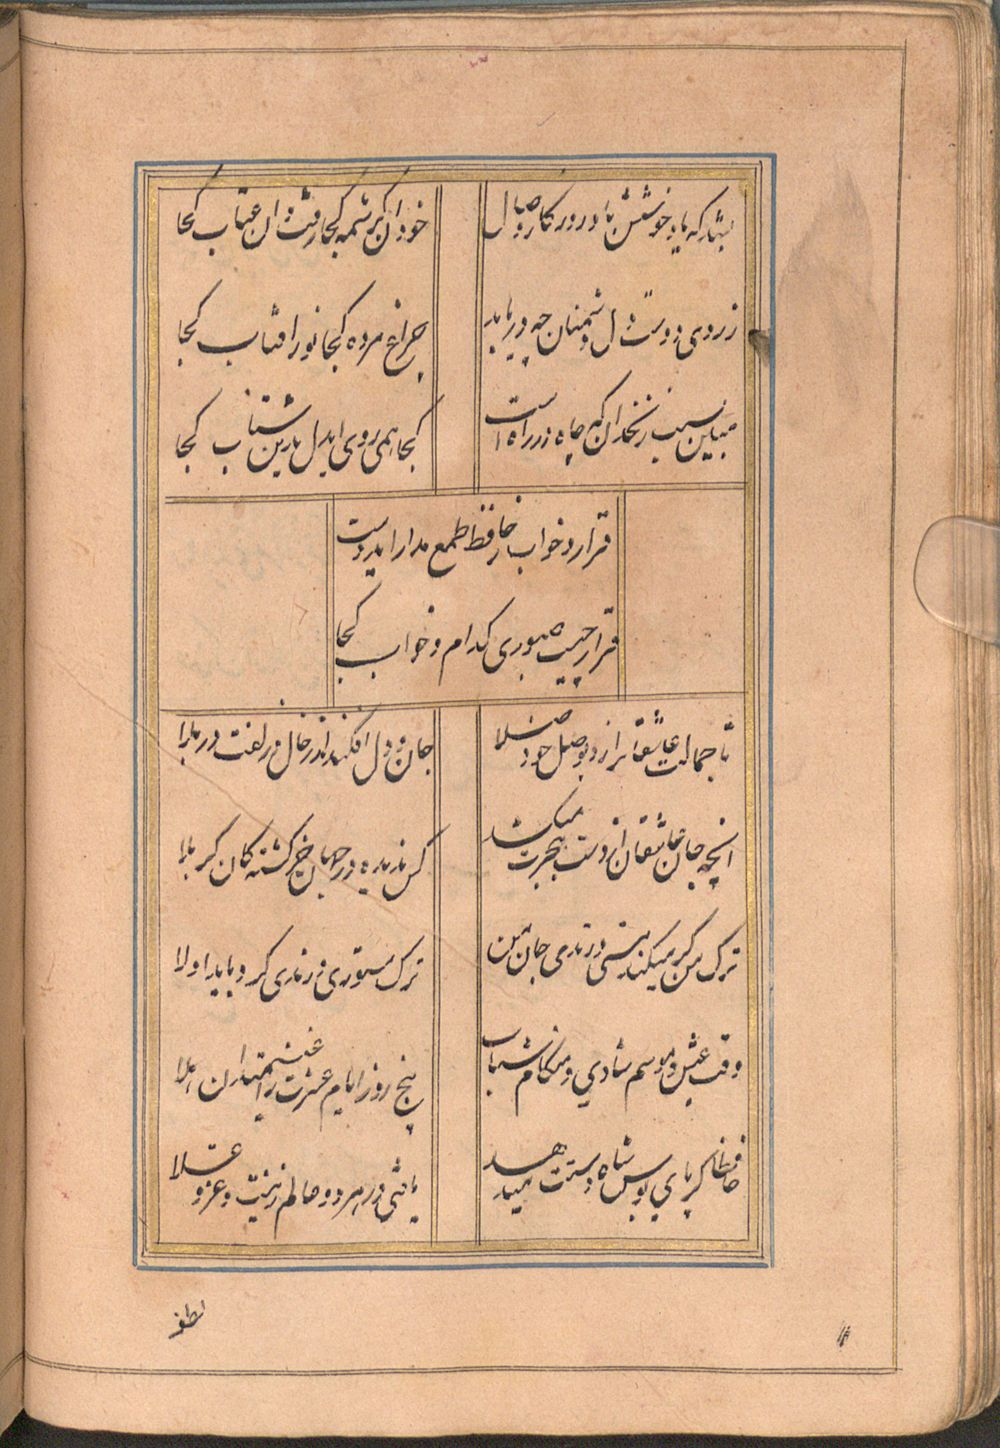 بشد که یاد خوشش باد روزگار وصال
خود آن کرشمه کجا رفت و آن عتاب کجا
ز روی دوست دل دشمنان چه دریابد
چراغ مرده کجا نور افتاب کجا
مبین بسیب زنخدان که چاه در راه است
کجا همی روی ایدل بدین شتاب کجا
قرار و خواب ز حافظ طمع مدار ایدوست
قرار چیست صبوری کدام و خواب کجا
تا جمالت عاشقانرا زد بوصل خود صلا
جان و دل افکنده اند از خال و زلفت در بلا
انچه جان عاشقان از دست هجرت میکشد
کس ندیده در جهان جز کشتکان کربلا
ترک من گر میکند رندی و مستی جان من
ترک مستوری و رندی کرد باید اولا
وقت عیش و موسم شادی و هنکام شباب
پنج روز ایام عشرت را غنیمت دان هلا
حافظا گر پای بوس شاه دستت میدهد
یافتی در هر دو عالم زینت و عز و علا
لطف